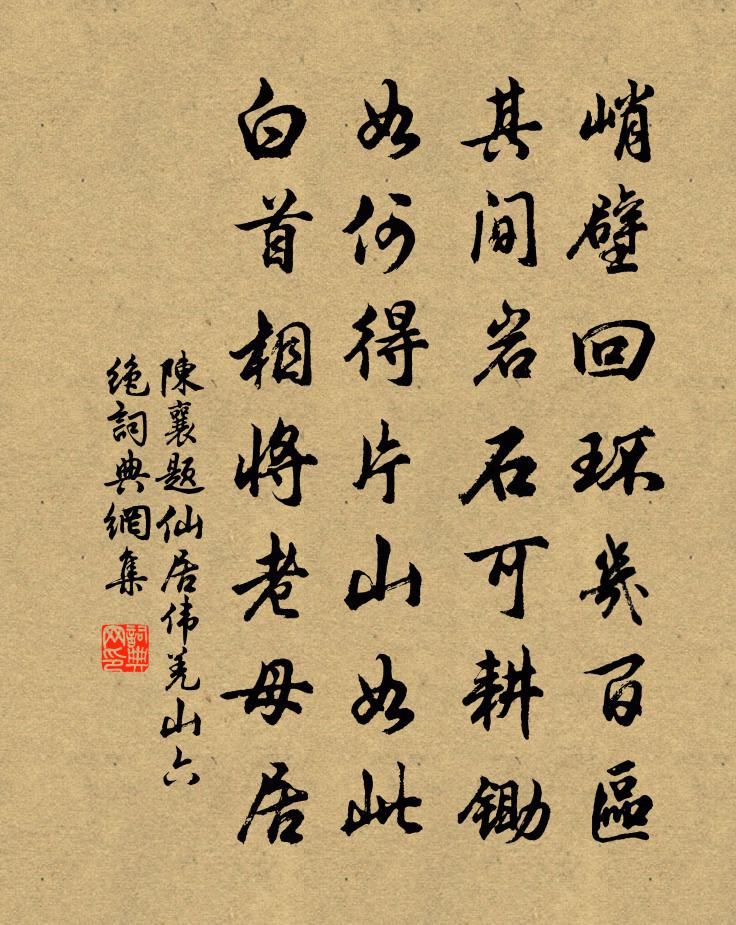 峭壁回环幾百區
其间岩石可耕锄
如何得片山如此
白首相将老母居
陳襄题仙居伟羌山六
绝詞典網集
詞典网印